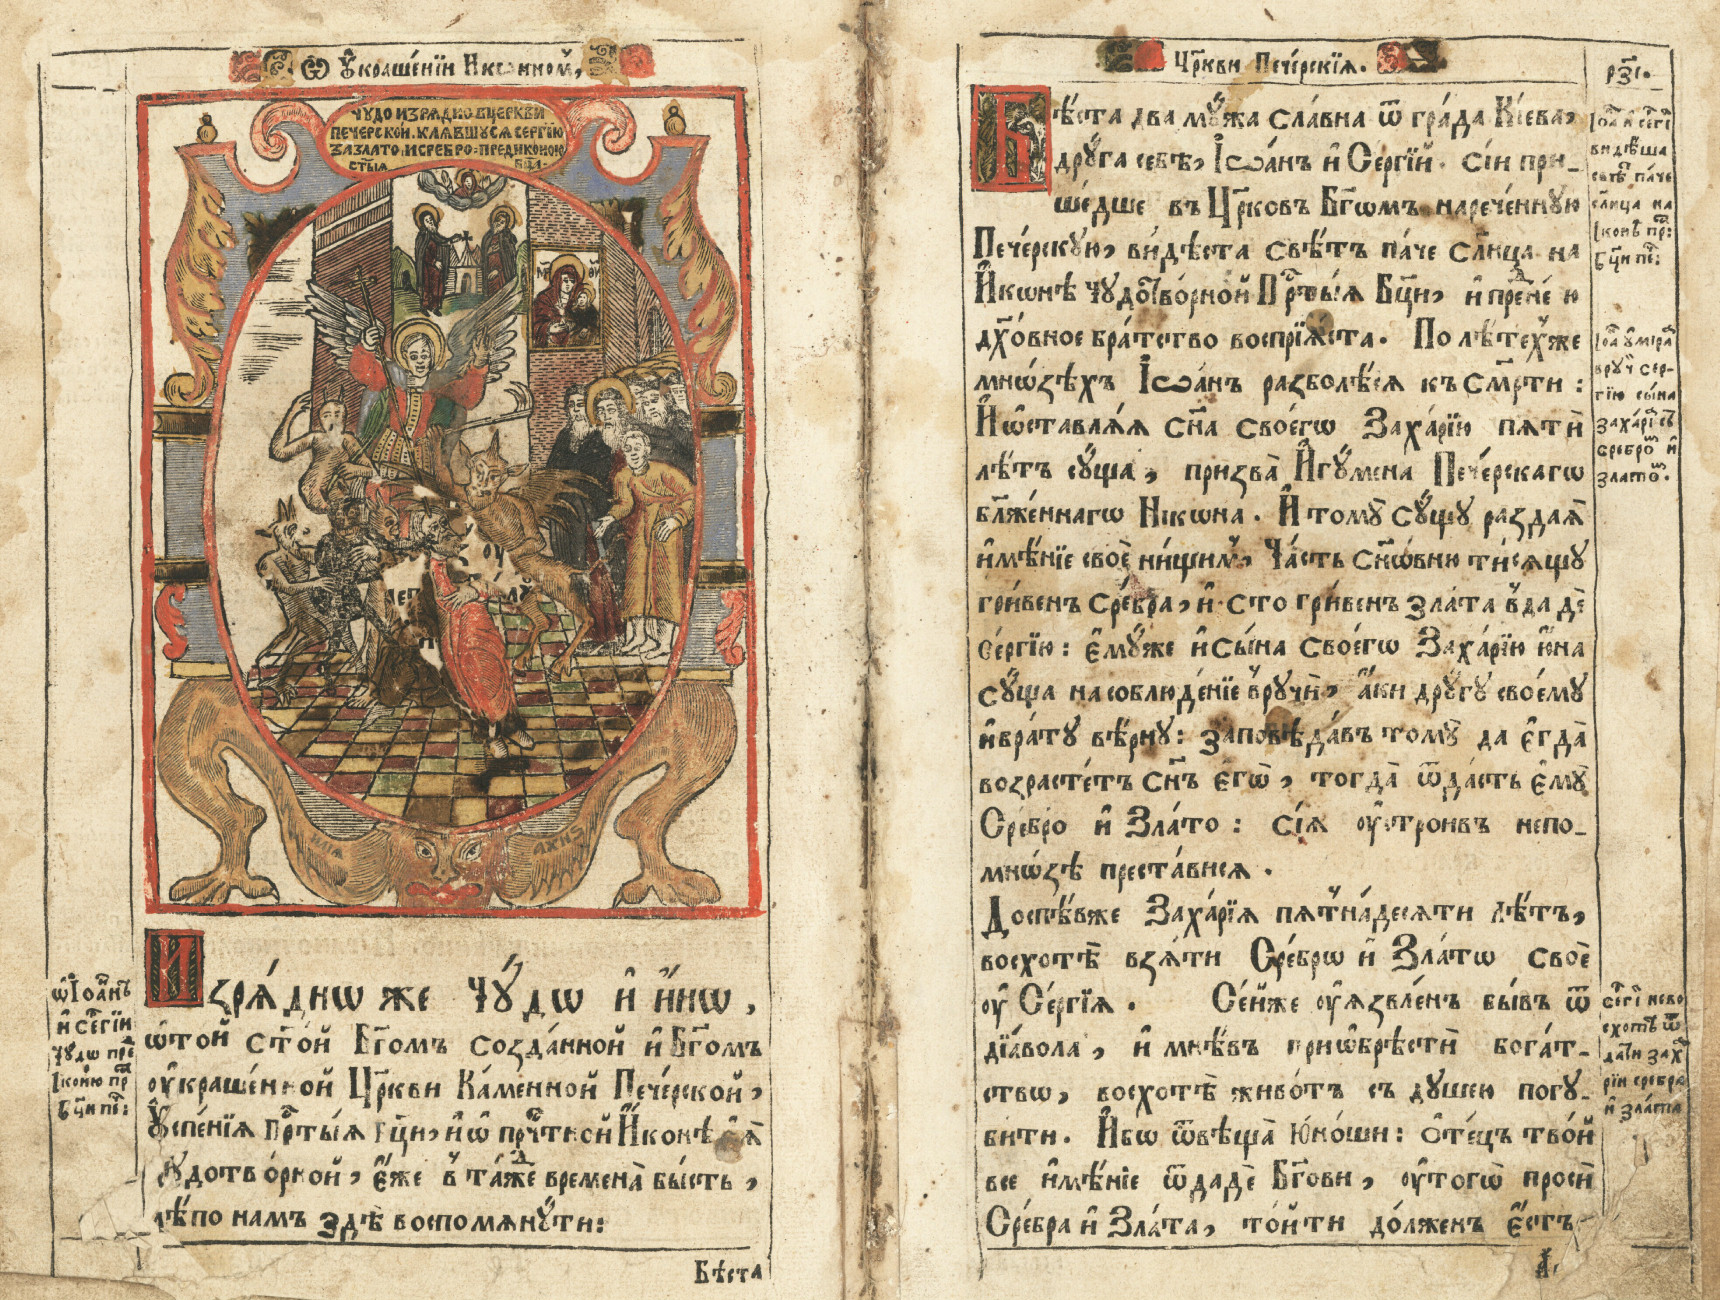 Ѿ Ѹ҆краше́нїи Икѡнном̾,
ЧУДО ИЗРѦДНО ВЦЕРКВИ
ПЕЧЕРСКОЙ. КЛѦВШУСѦ СЕРГІЮ
ЗАЗЛАТО, И СРЕБРО: ПРЕД ИКОНОЮ
СТ҃ЫѦ БЦ҃А.
МР҃ ѲУ҃
ИЛІѦ
АХНЅ
И҆зрѧ́днѡ же Чꙋ́дѡ и҆ и҆́нѡ,
ѡ҆той ст҃о́й Бг҃омъ созда́нной и҆ Бг҃омъ
ᲂу҆краше́нной Цр҃кви Ка́менной Пече́рской,
Ѹ҆спе́нїѧ Прⷭ҇ты́ѧ Бц҃и, и҆ ѡ҆ прⷱ҇тной И҆ко́нѣ є҆ѧ̀
Чудотво́рной, є҆́же в̾ та́ѧже времена̀ бы́сть,
лѣ́по намъ здѣ̀ воспомѧнꙋ́ти:
ѡ҆ Іѡа́нѣ
и҆ се́ргїи
чꙋ́дѡ пре
Іко́ною прⷭ҇
бц҃и пе:
Бѣ́ста
Цр҃кви Пече́рскїѧ.
рѯ҃є.
Бѣ́ста два мꙋ́жа сла́вна ѿ гра́да Кі́ева,
дрꙋ́га себѣ̀, Іѡа́нъ и҆ Се́ргїй. сїи при-
ше́дше въ Цр҃ковь Бг҃омъ нарече́нную
Пече́рскꙋю, ви́дѣста свѣ́тъ па́че сл҃нца на
И҆ко́нѣ чꙋдотво́рной Прⷭ҇ты́ѧ Бц҃и, и҆ пре́д не́ю
дꙋхо́вное бра́тство воспрїѧ́ста. По лѣ́тѣхже
мно́зѣхъ Іѡа́нъ разболѣ́сѧ къ См҃рти:
И҆ ѡ҆ставлѧ́ѧ Сн҃а своегѡ̀ Заха́рїю пѧтѝ
лѣ́тъ сꙋ́ща, призва̀ И҆гꙋ́мена Пече́рскагѡ
бл҃же́ннагѡ Ні́кона. И҆ томꙋ̀ сꙋ́щꙋ раздаѧ̀
и҆мѣ́нїе своѐ ни́щим̾, Ча́сть Сн҃о́вню ти́сѧщꙋ
гри́венъ Сре́бра, и҆ сто гри́венъ зла́та в̾да дѐ
Се́ргїю: є҆мꙋ́же и҆ сы́на своегѡ̀ Заха́рїю ю҆́на
сꙋ́ща на соблюде́нїе врꙋчѝ, а҆́ки дрꙋ́гꙋ своемꙋ̀
и҆ бра́тꙋ вѣ́рнꙋ: заповѣ́давъ томꙋ̀ да є҆гда̀
возрасте́тъ Сн҃ъ є҆гѡ̀, тогда̀ ѿда́сть є҆мꙋ̀
Сребро̀ и҆ Зла́то: сїѧ̀ ᲂу҆строивъ непо-
мно́зѣ преста́висѧ.
Доспѣ́вже Заха́рїѧ пѧтⸯна́десѧти лѣ́тъ,
восхотѣ̀ взѧ́ти Сре́брѡ и҆ Зла́тѡ своѐ
ᲂу҆ Се́ргїѧ. Се́йже ᲂу҆ѧзвле́нъ бы́въ ѿ
дїа́вола, и҆ мнѣ́въ приѡбрѣстѝ бога́т-
ствѡ, восхотѣ̀ живо́тъ съ дꙋше́ю погꙋ-
би́ти. И҆бѡ ѿвѣща̀ Ю҆́ноши: ѻ҆те́цъ тво́й
все и҆мѣ́нїе ѿдадѐ Бг҃ови, ᲂу҆ тогѡ̀ проси̂
Сре́бра и҆ Зла́та, то́й ти до́лженъ є҆́сть
Іѡа҃ и҆ се́ргї
ви́дѣша
свѣ́тъ па́че
сл҃нца на
Іко́нѣ прⷭ҇:
бц҃и пе:
Іѡа҃ ᲂу҆мира́ѧ
врꙋчѝ сер-
гїю сы́на
заха́рїю съ
сребро́м и҆
зла́том.
се́ргїй нево
схотѣ̀ ѿ
да́ти заха́
рїи сребра
и҆ зла́та